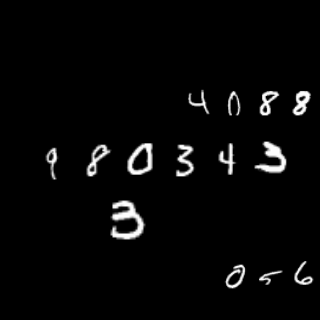 4088
980343
3
056